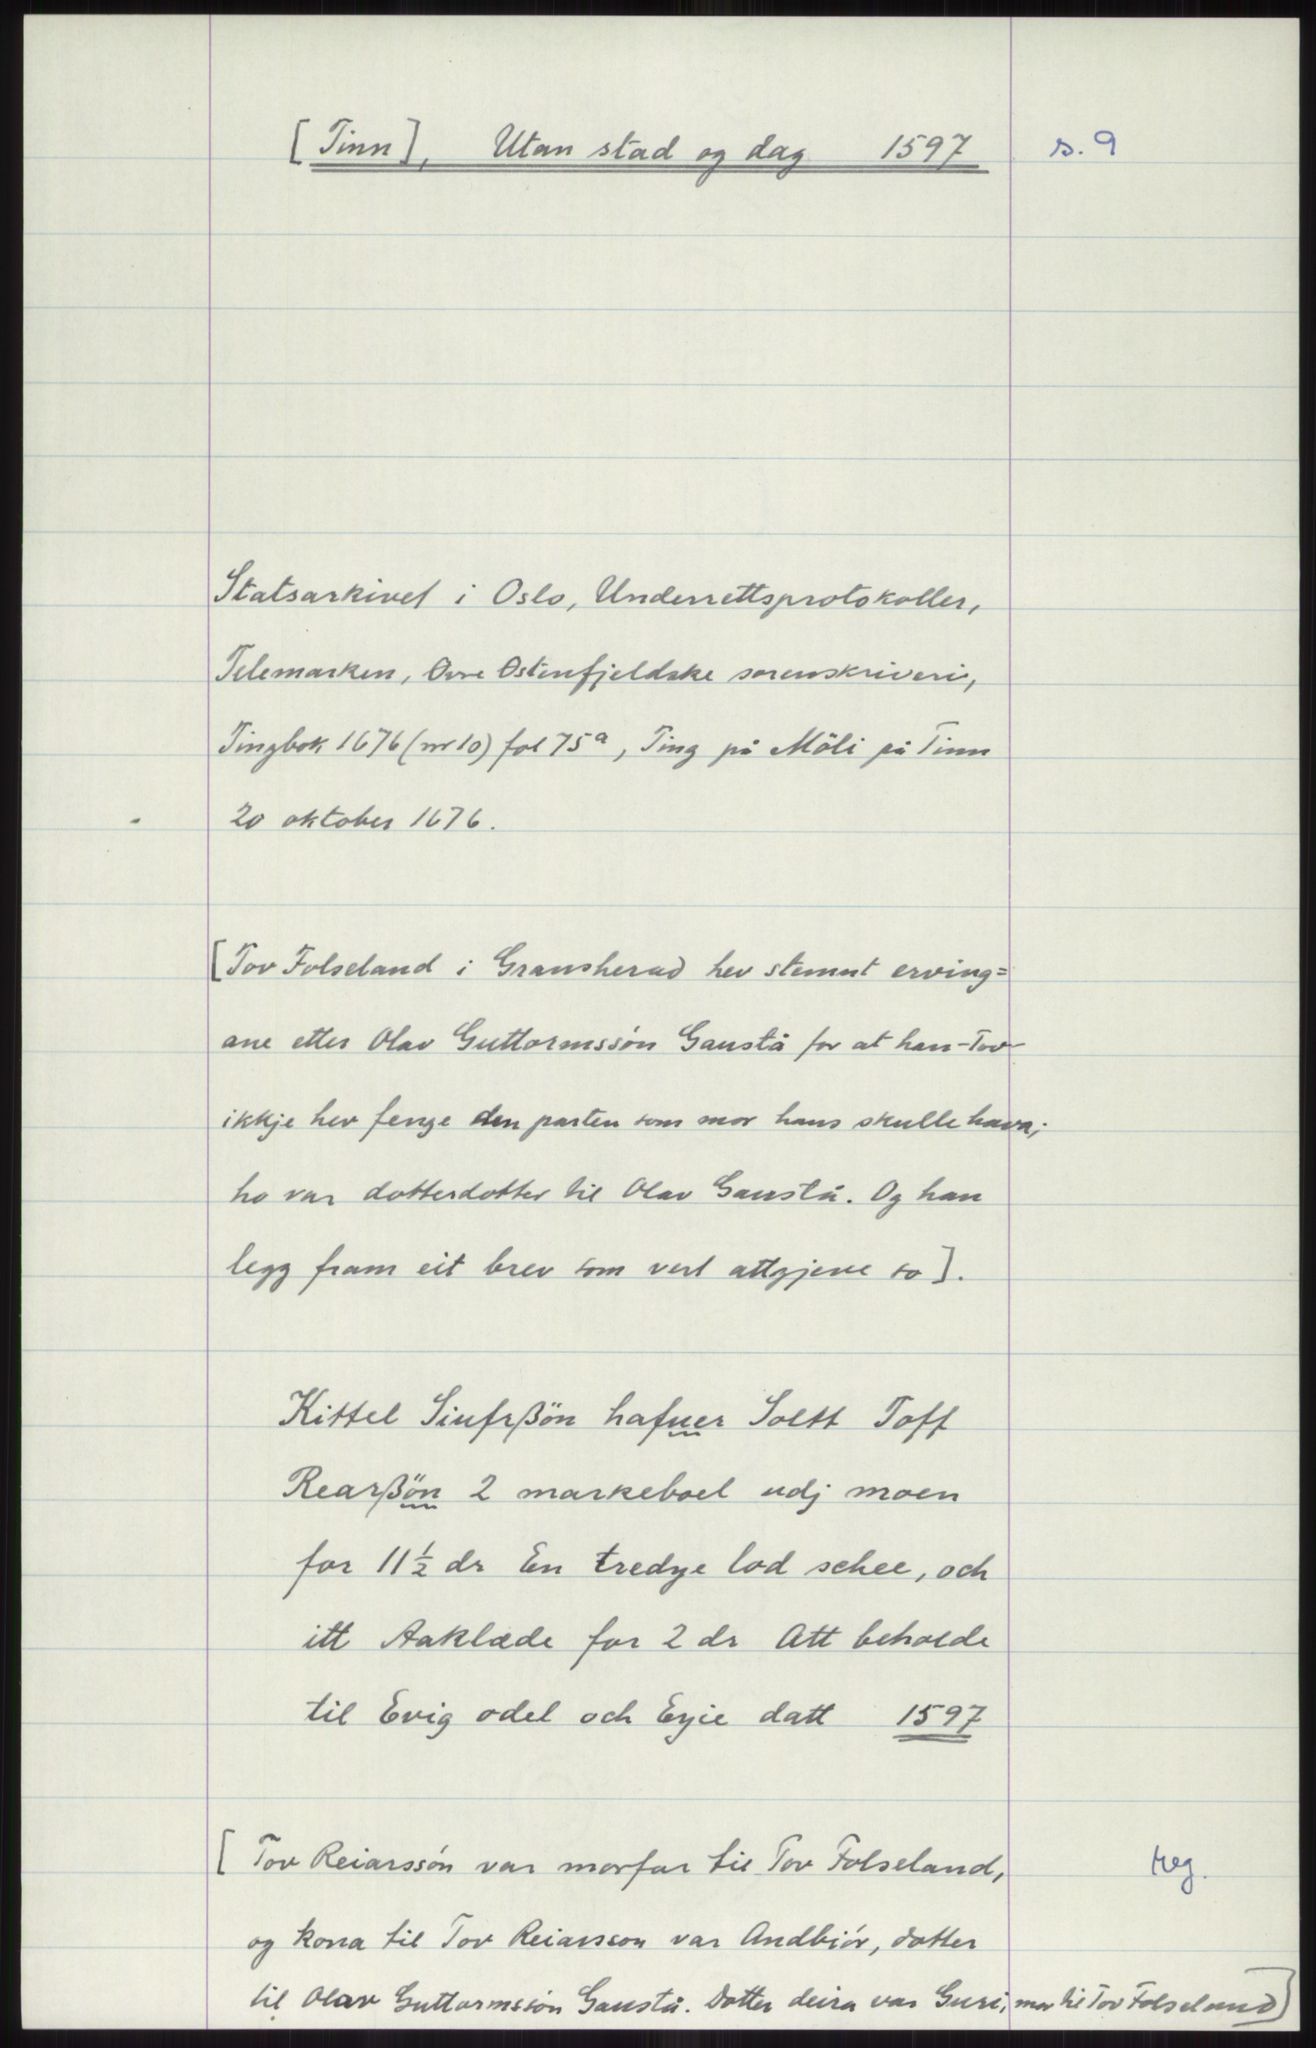 [Tinn], Utan stad og dag 1597 s. 9
Statsarkivet i Oslo, Underrettsprotokoller,
Telemarken, Øvre Østenfjeldske sorenskriveri,
Tingbok 1676 (nr 10) fol 75a, Ting på Möli på Tinn
20 oktober 1676.
[Tov Folseland i Gransherad hev stemnt erving=
ane etter Olav Guttormssón Gaustå for at han -Tov-
ikkje hev fenge den parten som mor hans skulle hava;
ho var dotterdotter til Olav Gaustå. Og han
legg fram eit brev som vert attgjeve so].
Kittel Siufrßön hafuer Soltt Toff
Rearßön 2 markeboel udj moen
for 11½ dr En tredye lod schee, och
itt Aaklæde for 2 dr Att beholde
til Evig odel och Eyie datt 1597
[Tov Reiarssón var morfar til Tov Folseland, Reg.
og kona til Tov Reiarsson var Andbiór, dotter
til Olav Guttormssón Gaustå. Dotter deira var Guri, mor til Tov Folseland]